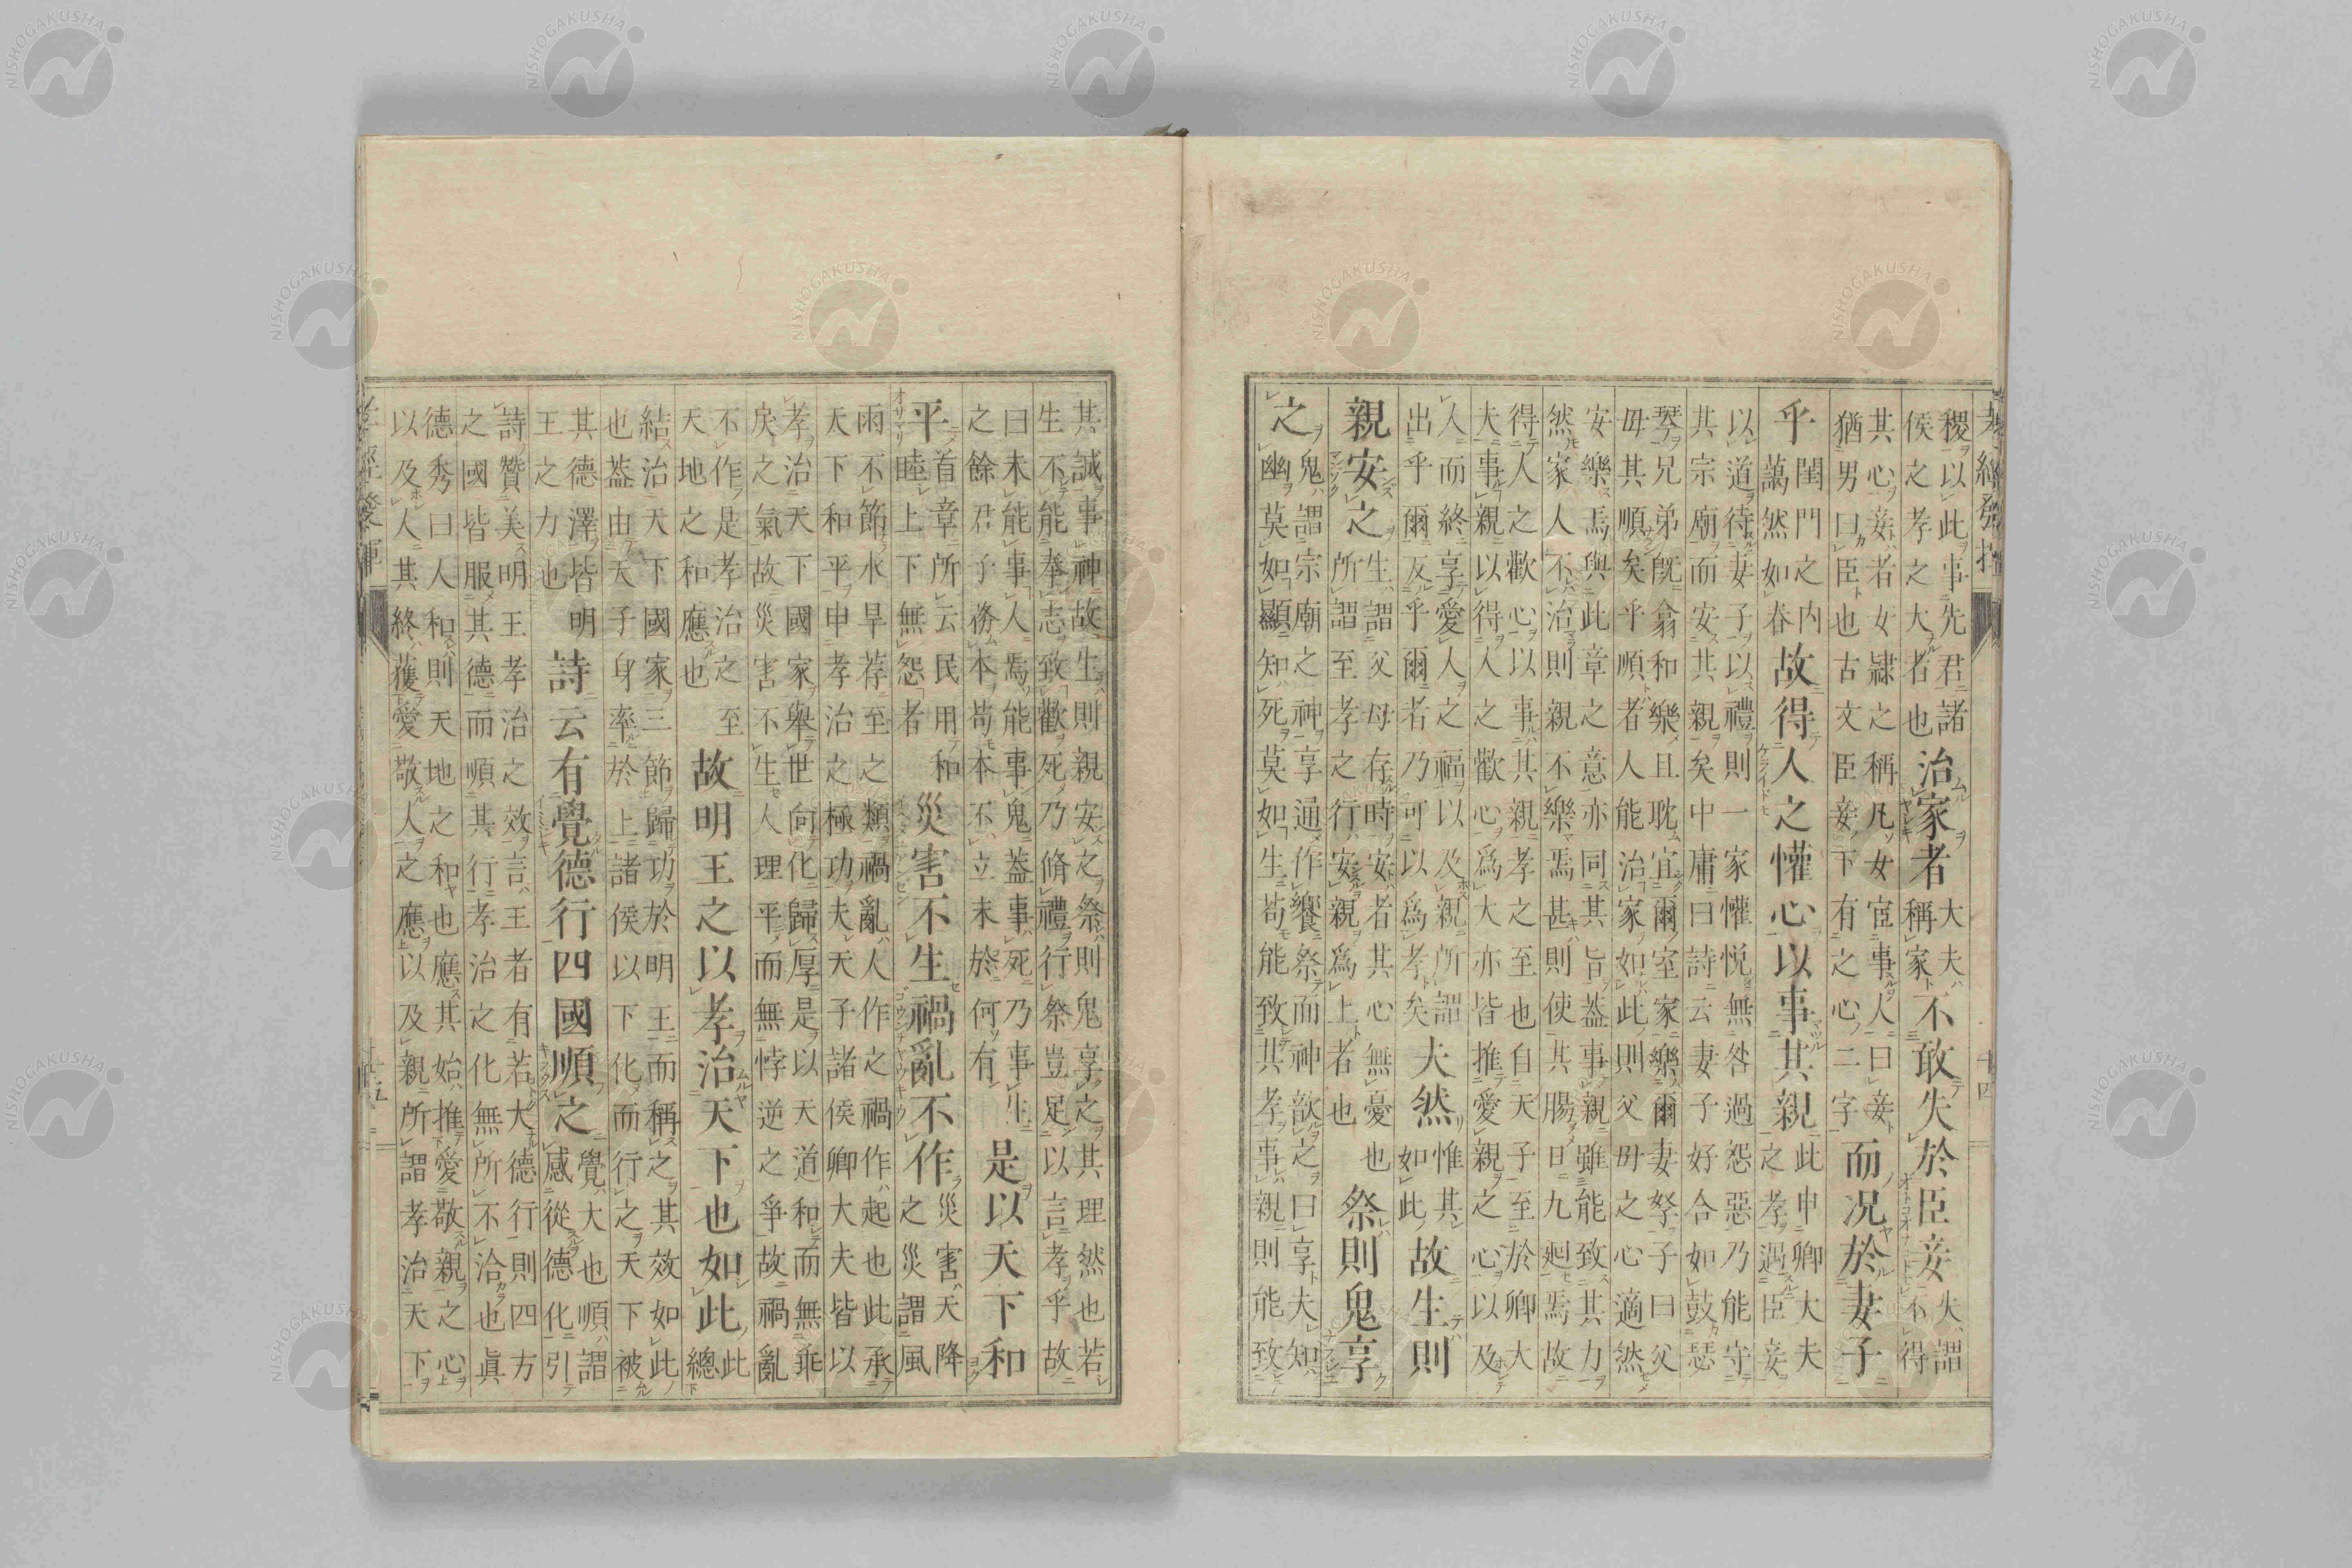 孝經發揮 十四
稷以此事先君諸
侯之孝之大者也
治家者
大夫
稱家
不敢失於臣妾
失謂
不得
其心妾者女隷之稱凡女宦事人曰妾
猶男曰臣也古文臣妾下有之心二字
而况於妻子
乎
閨門之内
萬然如春
故得人之懽心以事其親
此申卿大夫
之孝遇臣妾
以道待妻子以禮則一家懽悦無咎過怨惡乃能守
其宗廟而安其親矣中庸曰詩云妻子好合如鼓瑟
琴兄弟既翕和樂且耽宜爾室家樂爾妻孥子曰父
母其順矣乎順者人能治家如此則父母之心適然
安樂焉與此章之意亦同其旨葢事親雖能致其力
然家人不治則親不樂焉甚則使其腸日九廻焉故
得人之歡心以事其親孝之至也自天子至於卿大
夫事親以得人之歡心爲大亦皆推愛親之心以及
人而終享愛人之福以及親所謂
出乎爾反乎爾者乃可以爲孝矣
夫然
惟其
如此
故生則
親安之
生謂父母存時安者其心無憂也
所謂至孝之行安親爲上者也
祭則鬼享
之
鬼謂宗廟之神享通作饗祭而神歆之曰享夫知
幽莫如顯知死莫如生苟能致其孝事親則能致
其誠事神故生則親安之祭則鬼享之其理然也若
生不能奉志致歡死乃脩禮行祭豈足以言孝乎故
曰未能事人焉能事鬼葢事死乃事生
之餘君子務本苟本不立末於何有
是以天下和
平
首章所云民用和
睦上下無怨者
災害不生禍亂不作
災害天降
之災謂風
雨不節水旱荐至之類禍亂人作之禍作起也此承
天下和平申孝治之極功夫天子諸侯卿大夫皆以
孝治天下國家舉世向化歸厚是以天道和而無乖
戻之氣故災害不生人理平而無悖逆之爭故禍亂
不作是孝治之至
天地之和應也
故明王之以孝治天下也如此
此
總
結治天下國家三節歸功於明王而稱之其效如此
也葢由天子身率於上諸侯以下化而行之天下被
其德澤皆明
王之力也
詩云有覺德行四國順之
覺大也順謂
感從德化引
詩贊美明王孝治之效言王者有若大德行則四方
之國皆服其德而順其行孝治之化無所不洽也眞
德秀曰人和則天地之和也應其始推愛敬親之心
以及人其終獲愛敬人之應以及親所謂孝治天下
孝經發揮 十五
NISHOGAKUSHA